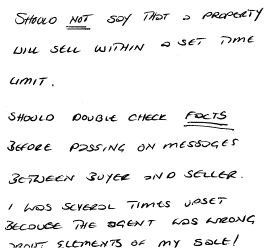 SHOULD NOT SAY THAT A PROPERTY
WILL SELL WITHIN A SET TIME
LIMIT.
SHOULD DOUBLE CHECK FACTS
BEFORE PASSING ON MESSAGES
BETWEEN BUYER AND SELLER.
I WAS SEVERAL TIMES UPSET
BECAUSE THE AGENT WAS WRONG
ABOUT ELEMENTS OF MY SALE!